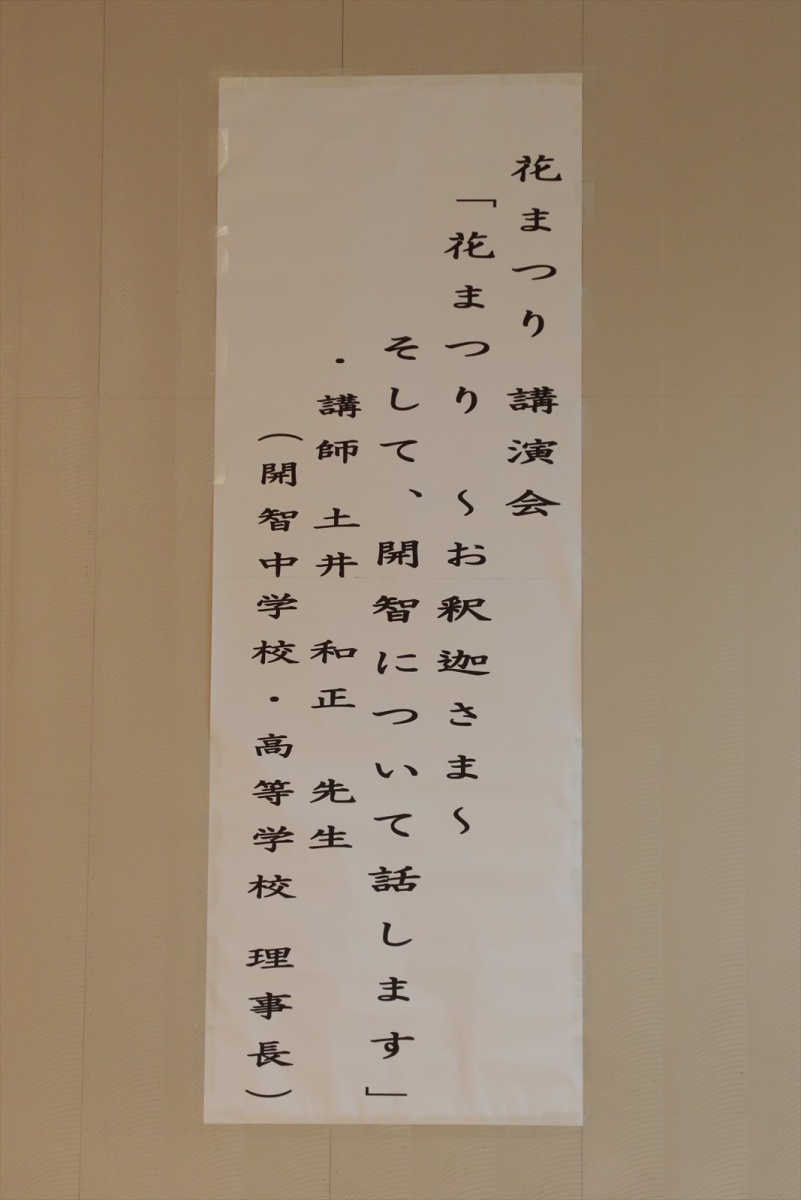 花まつり 講演会
「花まつり ～お釈迦さま～
そして、開智について話します」
・講師 土井 和正 先生
（開智中学校・高等学校 理事長）